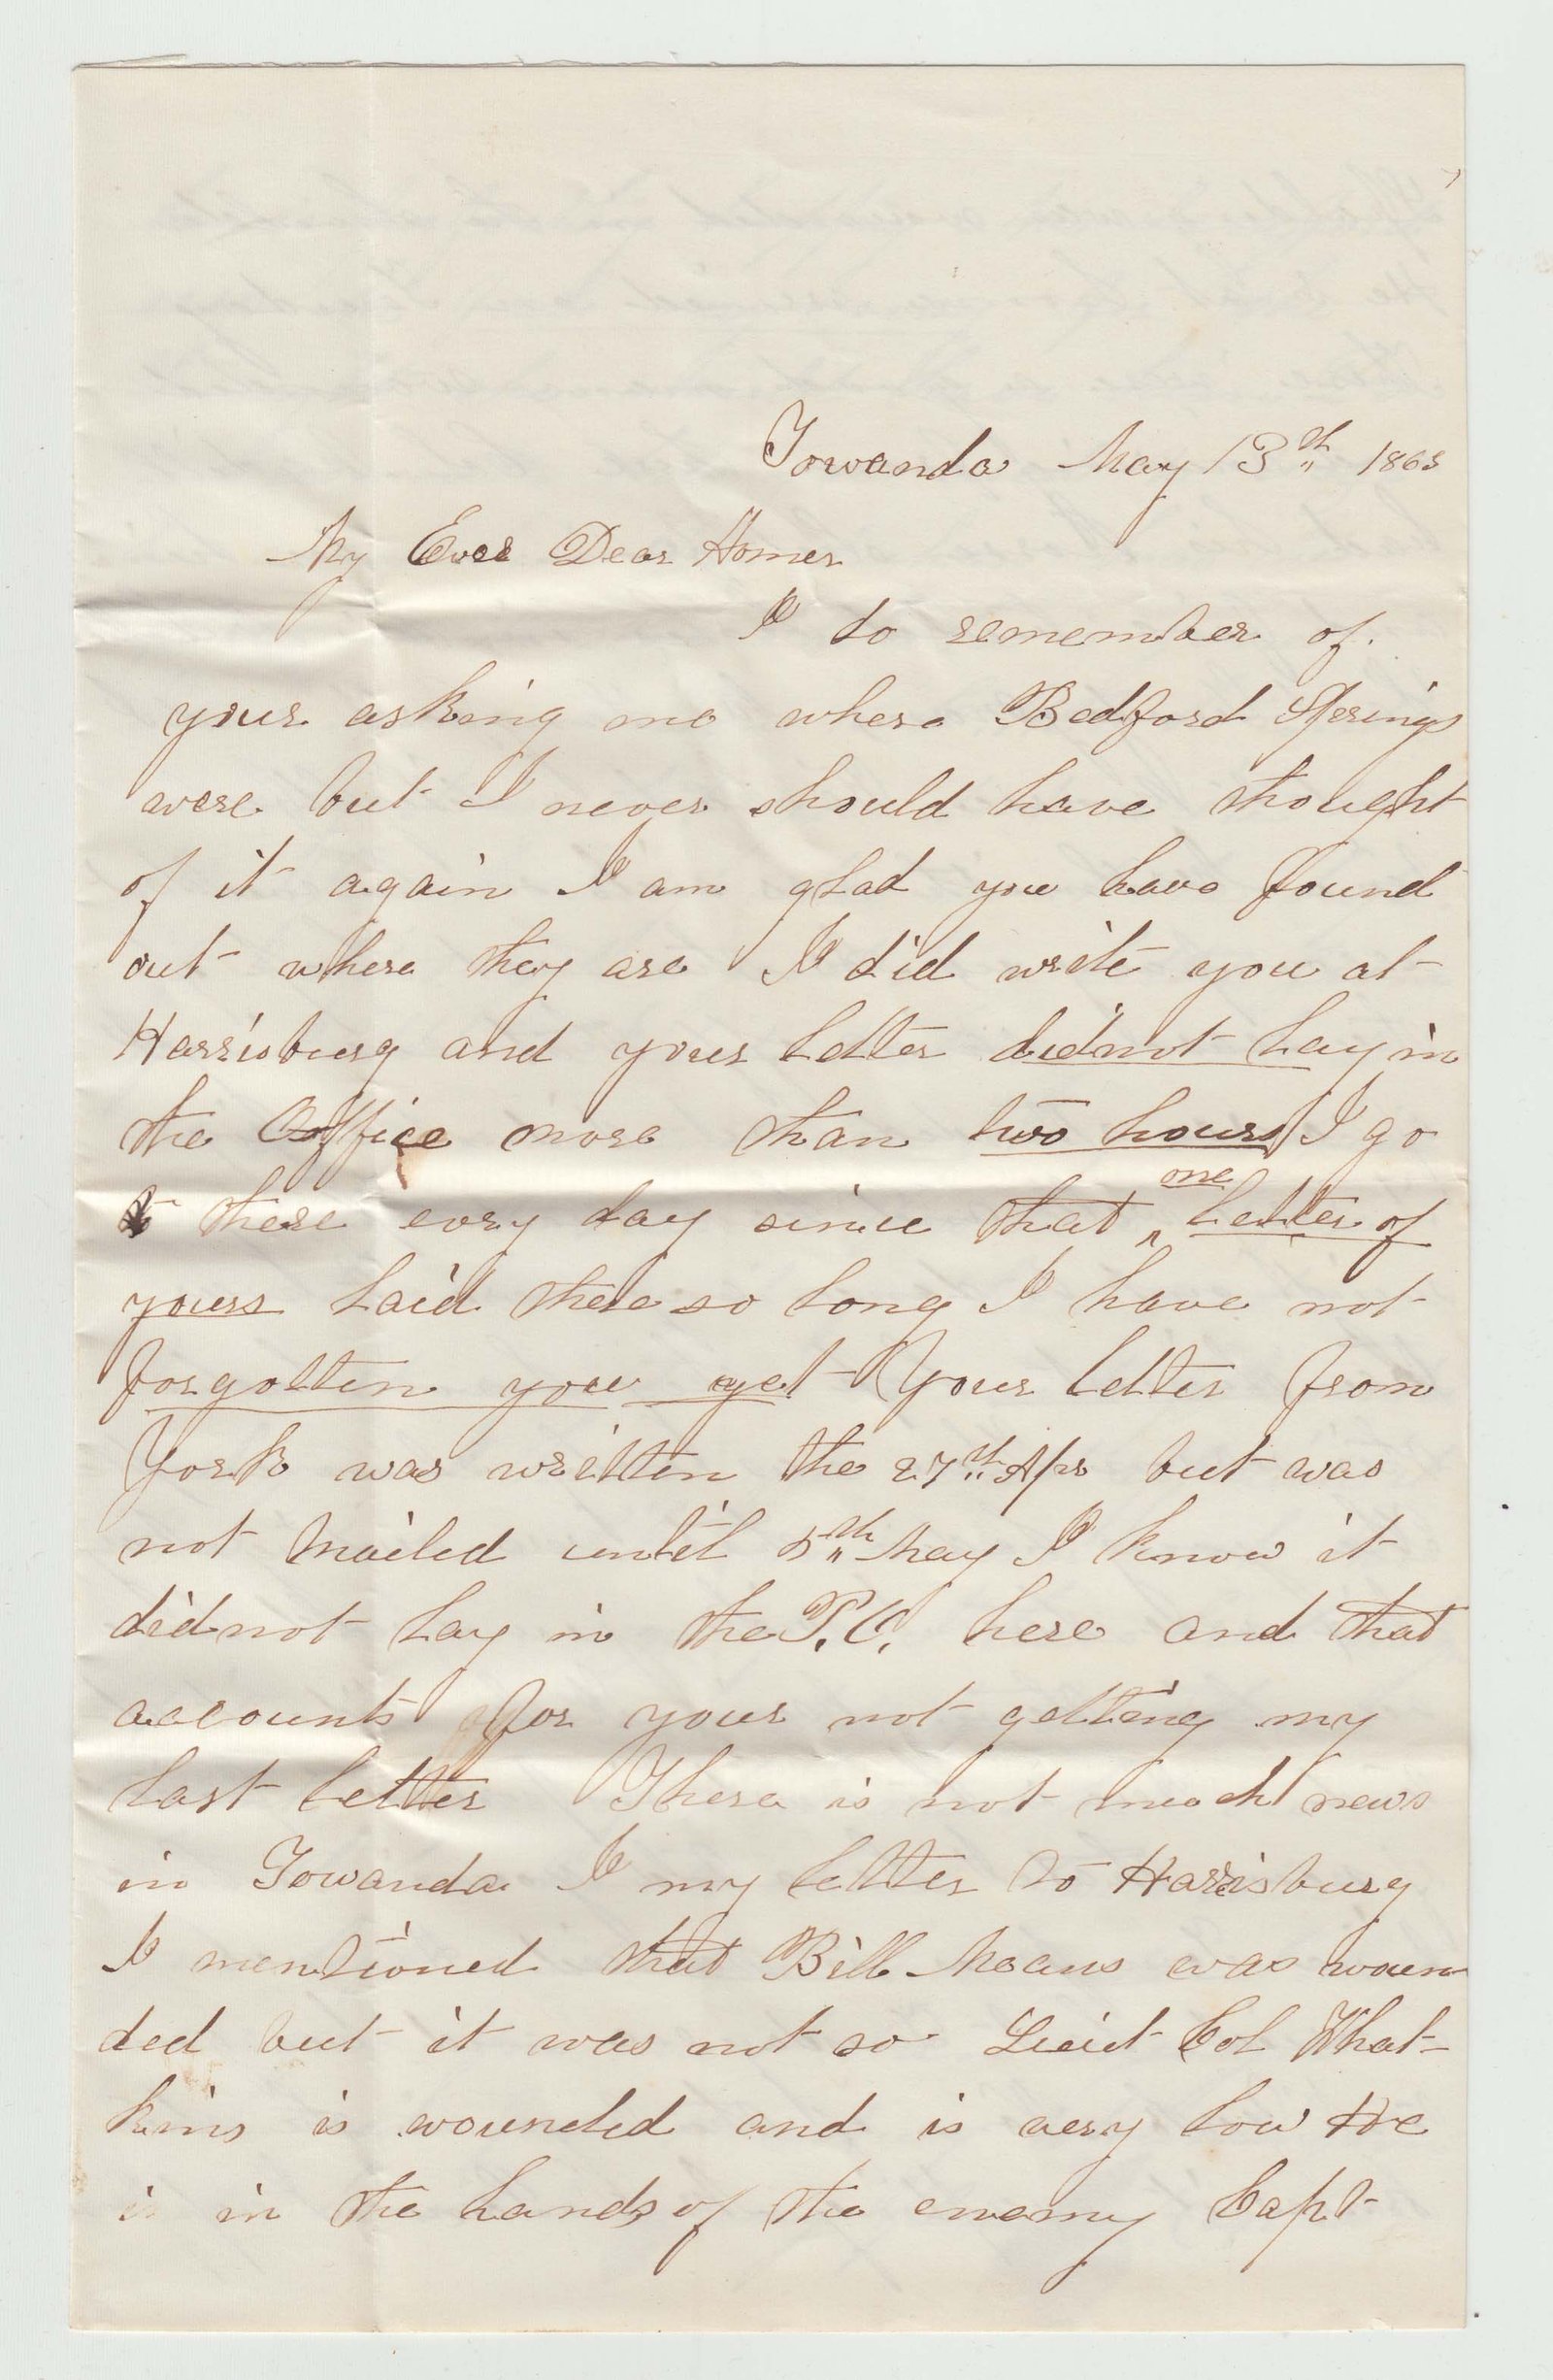 Towanda May 13th 1863
My Ever Dear Homer
I do remember of
your asking me where Bedford Springs
were but I never should have thought
of it again I am glad you have found
out where they are I did write you at
Harrisburg and your letter didnot lay in
the Office more than two hours I go
there every day since that one letter of
yours laid there so long I have not
forgotten you yet Your letter from
York was written the 27th Apr but was
not Mailed until 5th May I know it
didnot lay in the P.O. here and that
accounts for your not getting my
last letter There is not much news
in Towanda I my letter to Harrisburg
I mentioned that Bill Means was woun-
ded but it was not so Lieut Col What-
kins is wounded and is very low He
is in the hands of the enemy Capt